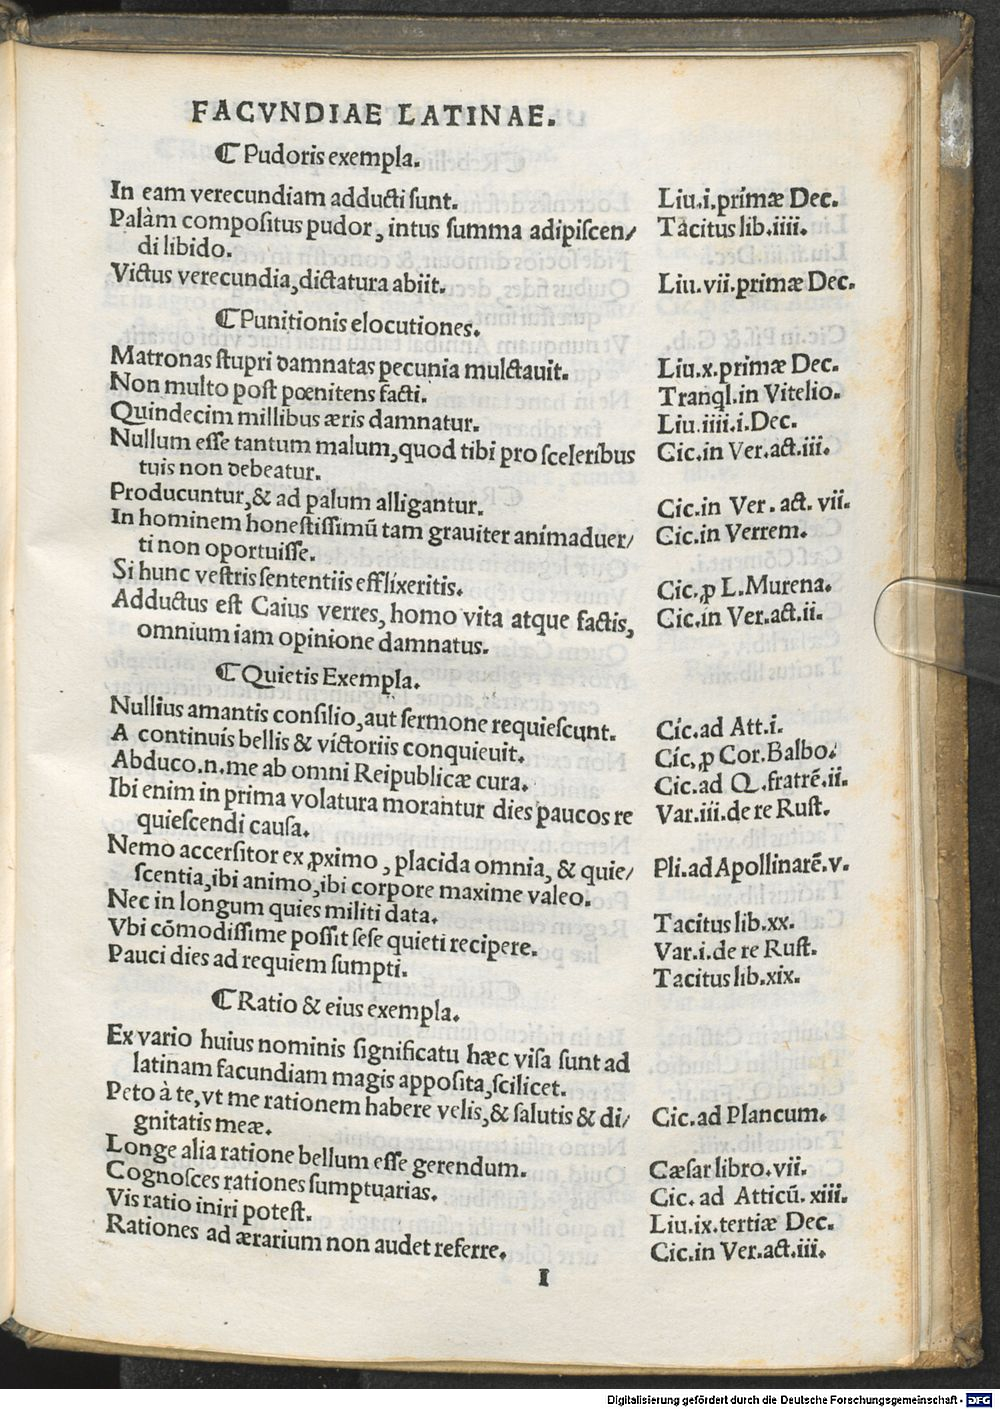 FACVNDIAE LATINAE.
¶ Pudoris exempla.
In eam verecundiam adducti sunt. Liu.i.primæ Dec.
Palàm compositus pudor, intus summa adipiscen/ Tacitus lib.iiii.
di libido.
Victus verecundia, dictatura abiit. Liu.vii.primæ Dec.
¶ Punitionis elocutiones.
Matronas stupri damnatas pecunia mulctauit. Liu.x.primæ Dec.
Non multo post pœnitens facti. Tranql.in Vitelio.
Quindecim millibus æris damnatur. Liu.iiii.i.Dec.
Nullum esse tantum malum,quod tibi pro sceleribus Cic.in Ver.act.iii.
tuis non debeatur.
Producuntur,& ad palum alligantur. Cic.in Ver. act. vii.
In hominem honestissimū tam grauiter animaduer/ Cic.in Verrem.
ti non oportuisse.
Si hunc vestris sententiis efflixeritis. Cic.ꝓ L.Murena.
Adductus est Caius verres, homo vita atque factis, Cic.in Ver.act.ii.
omnium iam opinione damnatus.
¶ Quietis Exempla.
Nullius amantis consilio,aut sermone requiescunt. Cic.ad Att.i.
A continuis bellis & victoriis conquieuit. Cic.ꝓ Cor.Balbo.
Abduco.n.me ab omni Reipublicæ cura. Cic.ad Q.fratrē.ii.
Ibi enim in prima volatura morantur dies paucos re Var.iii.de re Rust.
quiescendi causa.
Nemo accersitor ex ꝓximo, placida omnia, & quie/ Pli.ad Apollinarē.v.
scentia,ibi animo,ibi corpore maxime valeo.
Nec in longum quies militi data. Tacitus lib.xx.
Vbi cōmodissime possit sese quieti recipere. Var.i.de re Rust.
Pauci dies ad requiem sumpti. Tacitus lib.xix.
¶ Ratio & eius exempla.
Ex vario huius nominis significatu hæc visa sunt ad
latinam facundiam magis apposita,scilicet.
Peto à te,vt me rationem habere velis,& salutis & di/ Cic.ad Plancum.
gnitatis meæ.
Longe alia ratione bellum esse gerendum. Cæsar libro.vii.
Cognosces rationes sumptuarias. Cic. ad Atticū. xiii.
Vis ratio iniri potest. Liu.ix.tertiæ Dec.
Rationes ad ærarium non audet referre. Cic.in Ver.act.iii.
I
Digitalisierung gefördert durch die Deutsche Forschungsgemeinschaft - DFG